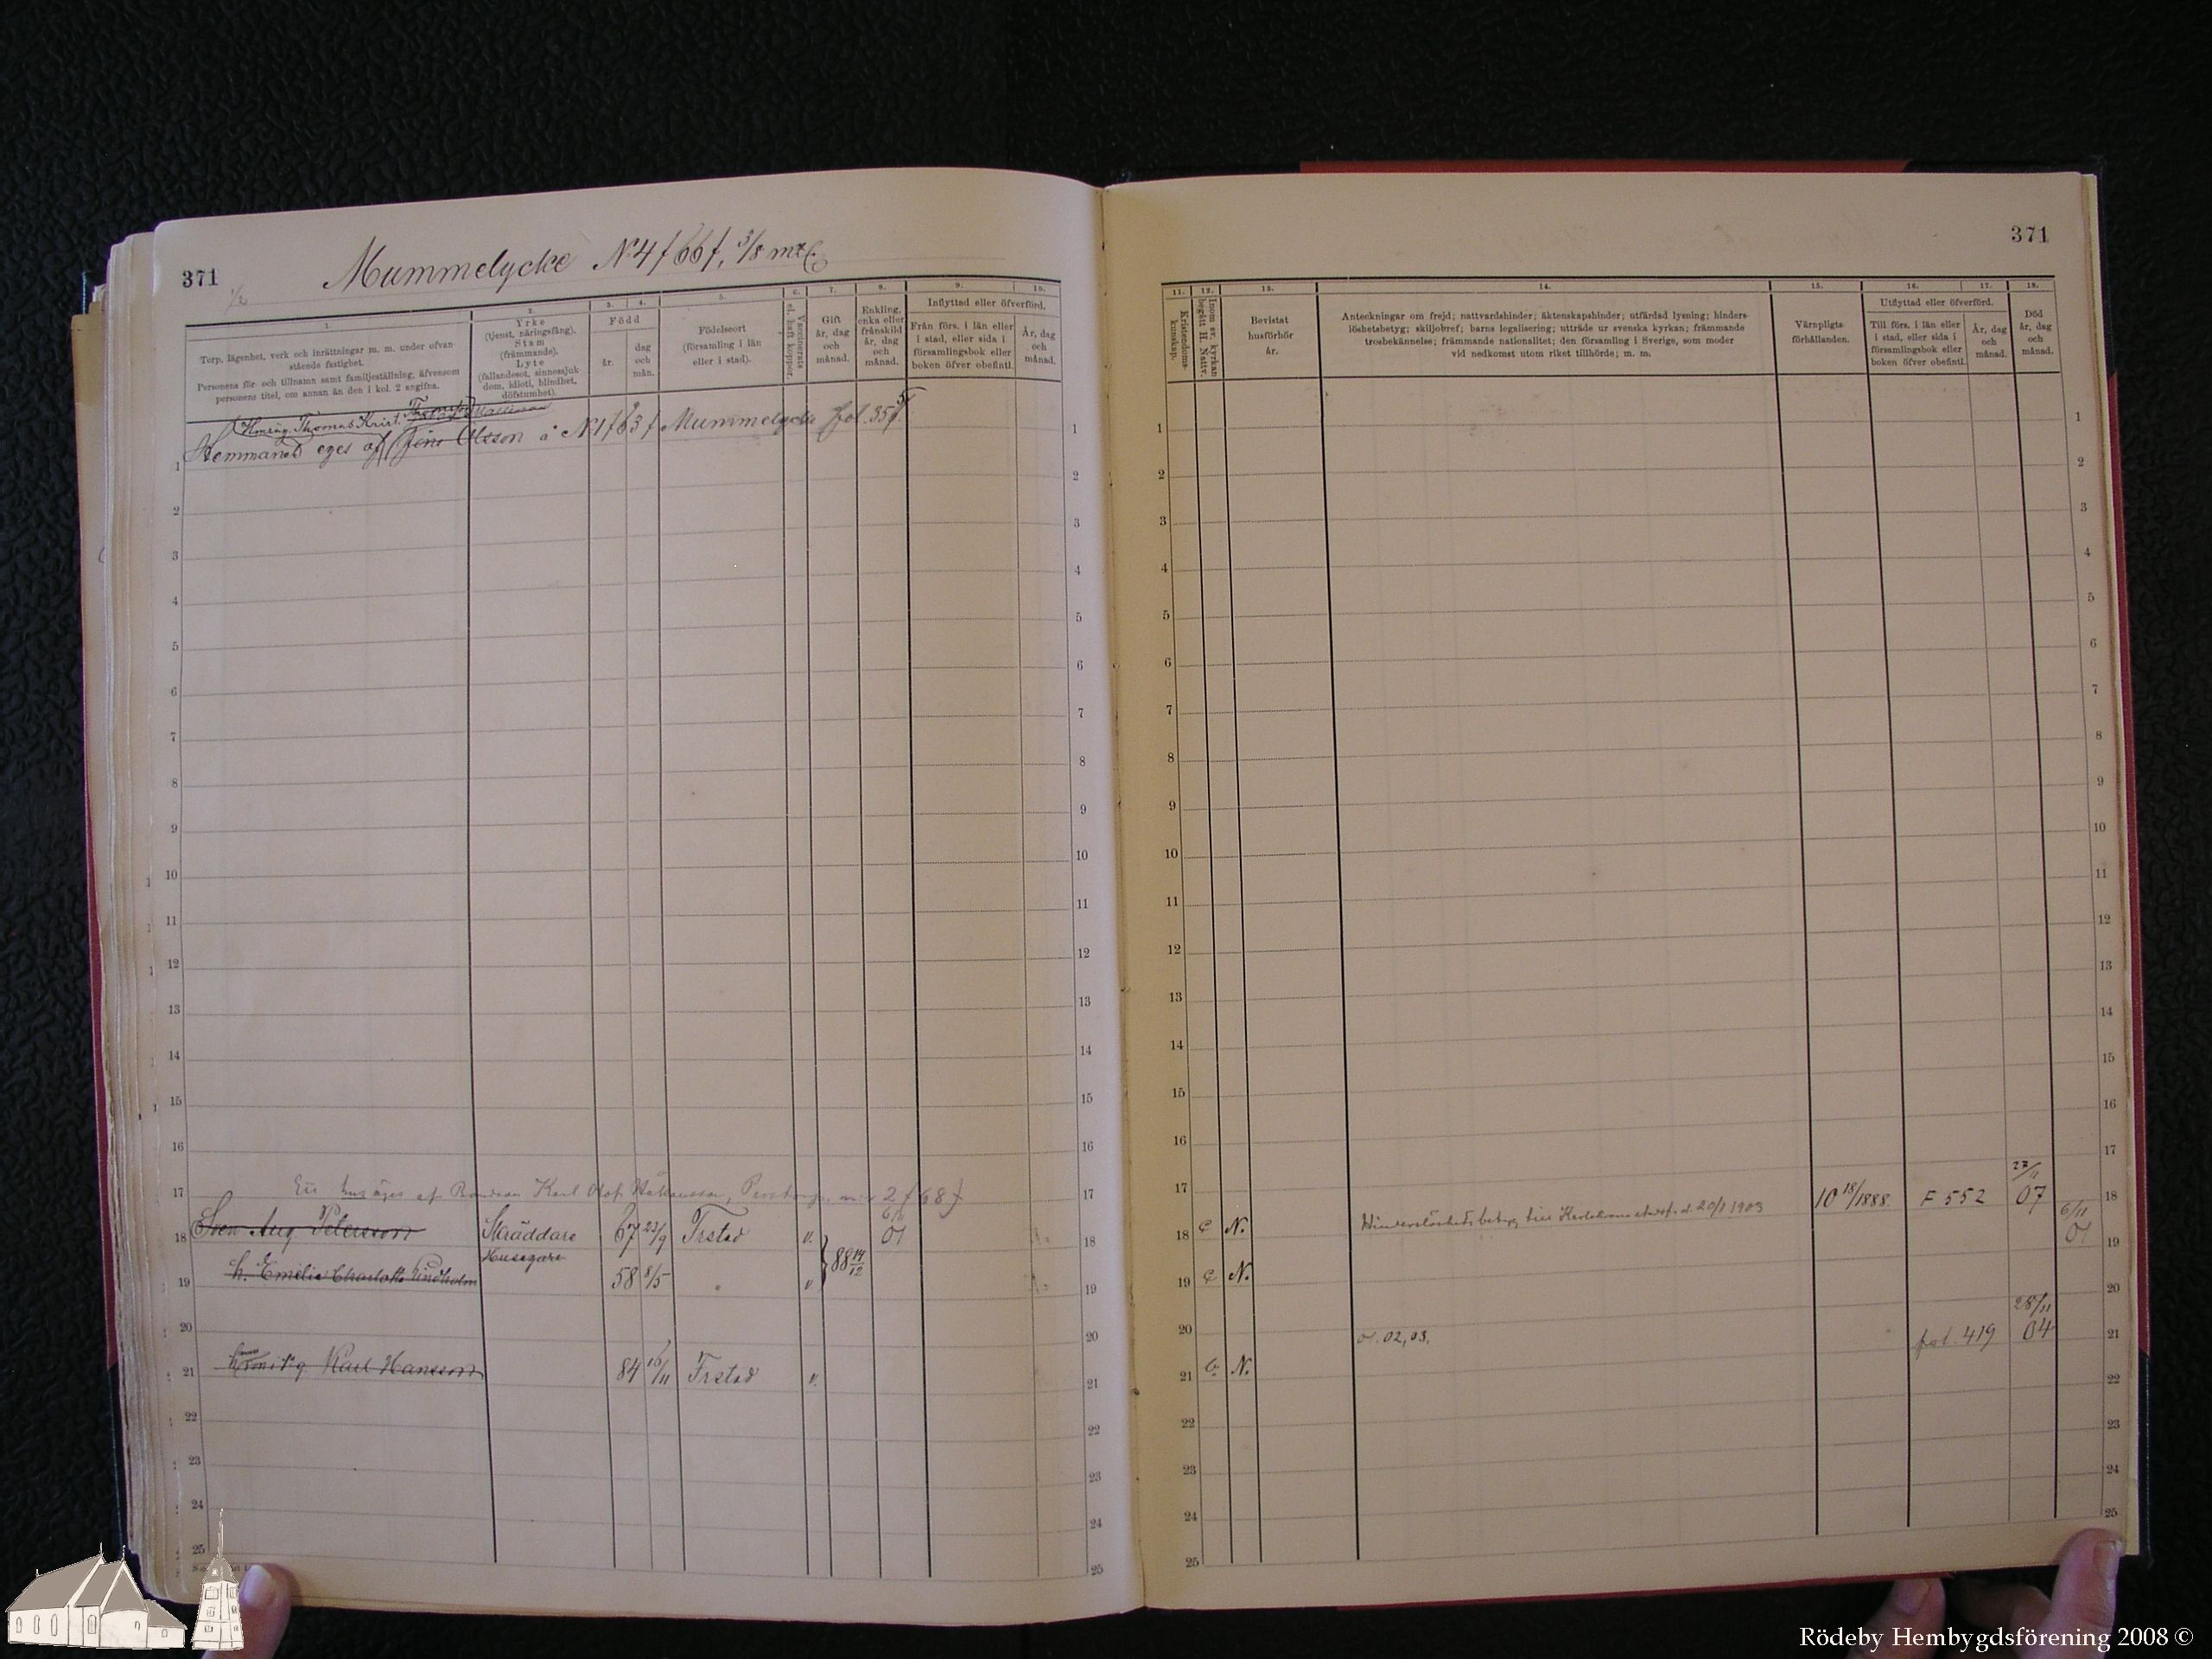 371
Mummelycke N:4 f 66 f, 3/8 mtl
1/2
1.
2.
3.
4.
5.
6.
7.
8.
9.
10.
Torp, lägenhet, verk och inrättningar m. m. under ofvan stående fastighet.
Personens för- och tillnamn samt familjeställning, äfvensom personens titel, om annan än den i kol. 2 angifna.
Yrke
(tjenst, näringsfång).
Stam
(främmande).
Lyte
(fallandesot, sinnessjuk-
dom, idioti, blindhet,
döfstumhet).
Född
år.
dag
och
mån.
Födelseort
(församling i län
eller i stad).
Vaccinerats
el. haft koppor.
Gift
år, dag
och
månad.
Enkling,
enka eller
frånskild
år, dag
och
månad.
Inflyttad eller öfverförd.
Från förs. i län eller
i stad, eller sida i
församlingsbok eller
boken öfver obefintl.
År, dag
och
månad.
Thomas Krist.
Hemmanet eges af Jöns Olsson å N:1 f 63 f Mummelycke fol. 357.
1
2
3
4
5
6
7
8
9
10
11
12
13
14
15
16
17 Karl Olof 2 f 68 f
18 Sven Aug. Petersson Skräddare 67 23/9 Frstad v. 6/11 01
Husegare
19 h. Emelia Charlotta Lindholm 58 8/5 " v 88 14/12
20
21 Karl Hansson 84 16/11 Frstad v.
22
23
24
25
371
11.
12.
13.
14.
15.
16.
17.
18.
Kristendoms-
kunskap.
Inom sv. kyrkan
begått H. Nattv.
Bevistat
husförhör
år.
Anteckningar om frejd; nattvardshinder; äktenskapshinder; utfärdad lysning; hinders-
löshetsbetyg; skiljobref; barns legalisering; utträde ur svenska kyrkan; främmande
trosbekännelse; främmande nationalitet; den församling i Sverige, som moder
vid nedkomst utom riket tillhörde; m. m.
Värnpligts-
förhållanden.
Utflyttad eller öfverförd.
Till förs. i län eller
i stad, eller sida i
församlingsbok eller
boken öfver obefintl.
År, dag
och
månad.
Död
år, dag
och
månad.
1
2
3
4
5
6
7
8
9
10
11
12
13
14
15
16
17
18 c N. Hinderslöshetsbetyg till d. 20/1 1903 10 18/1888. F 552 27/11 07
19 c N. 6/11 01
20
21 b. N. 02, 03. fol. 419 28/11 04
22
23
24
25
Rödeby Hembygdsförening 2008 ©